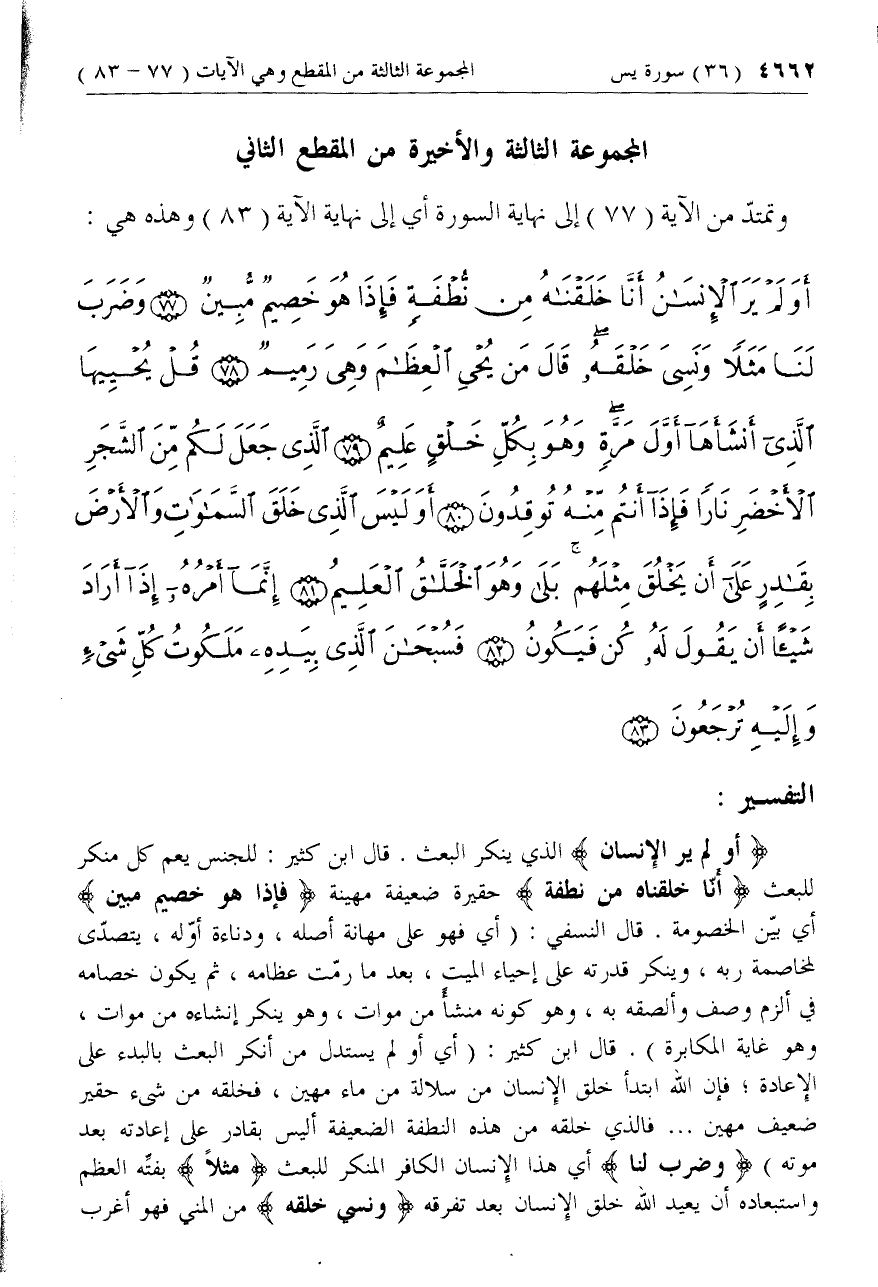 ٤٦٦٢ ( ٣٦ ) سورة يس المجموعة الثالثة من المقطع وهي الآيات ( ٧٧ – ٨٣ )
المجموعة الثالثة والأخيرة من المقطع الثاني
وتمتدّ من الآية ( ٧٧ ) إلى نهاية السورة أي إلى نهاية الآية ( ٨٣ ) وهذه هي :
أَوَلَمْ يَرَ ٱلْإِنسَٰنُ أَنَّا خَلَقْنَٰهُ مِن نُّطْفَةٍ فَإِذَا هُوَ خَصِيمٌ مُّبِينٌ ٧٧ وَضَرَبَ
لَنَا مَثَلًا وَنَسِىَ خَلْقَهُۥۖ قَالَ مَن يُحْىِ ٱلْعِظَٰمَ وَهِىَ رَمِيمٌ ٧٨ قُلْ يُحْيِيهَا
ٱلَّذِىٓ أَنشَأَهَآ أَوَّلَ مَرَّةٍۖ وَهُوَ بِكُلِّ خَلْقٍ عَلِيمٌ ٧٩ ٱلَّذِى جَعَلَ لَكُم مِّنَ ٱلشَّجَرِ
ٱلْأَخْضَرِ نَارًا فَإِذَآ أَنتُم مِّنْهُ تُوقِدُونَ ٨٠ أَوَلَيْسَ ٱلَّذِى خَلَقَ ٱلسَّمَٰوَٰتِ وَٱلْأَرْضَ
بِقَٰدِرٍ عَلَىٰٓ أَن يَخْلُقَ مِثْلَهُمۚ بَلَىٰ وَهُوَ ٱلْخَلَّٰقُ ٱلْعَلِيمُ ٨١ إِنَّمَآ أَمْرُهُۥٓ إِذَآ أَرَادَ
شَيْـًٔا أَن يَقُولَ لَهُۥ كُن فَيَكُونُ ٨٢ فَسُبْحَٰنَ ٱلَّذِى بِيَدِهِۦ مَلَكُوتُ كُلِّ شَىْءٍ
وَإِلَيْهِ تُرْجَعُونَ ٨٣
التفسير :
﴿ أو لم ير الإنسان ﴾ الذي ينكر البعث . قال ابن كثير : للجنس يعم كل منكر
للبعث ﴿ أنّا خلقناه من نطفة ﴾ حقيرة ضعيفة مهينة ﴿ فإذا هو خصيم مبين ﴾
أي بيّن الخصومة . قال النسفي : ( أي فهو على مهانة أصله ، ودناءة أوّله ، يتصدّى
لمخاصمة ربه ، وينكر قدرته على إحياء الميت ، بعد ما رمّت عظامه ، ثم يكون خصامه
في ألزم وصف وألصقه به ، وهو كونه منشأً من موات ، وهو ينكر إنشاءه من موات ،
وهو غاية المكابرة ) . قال ابن كثير : ( أي أو لم يستدل من أنكر البعث بالبدء على
الإعادة ؛ فإن الله ابتدأ خلق الإنسان من سلالة من ماء مهين ، فخلقه من شىء حقير
ضعيف مهين ... فالذي خلقه من هذه النطفة الضعيفة أليس بقادر على إعادته بعد
موته ) ﴿ وضرب لنا ﴾ أي هذا الإنسان الكافر المنكر للبعث ﴿ مثلاً ﴾ بفتّه العظم
واستبعاده أن يعيد الله خلق الإنسان بعد تفرقه ﴿ ونسي خلقه ﴾ من المني فهو أغرب